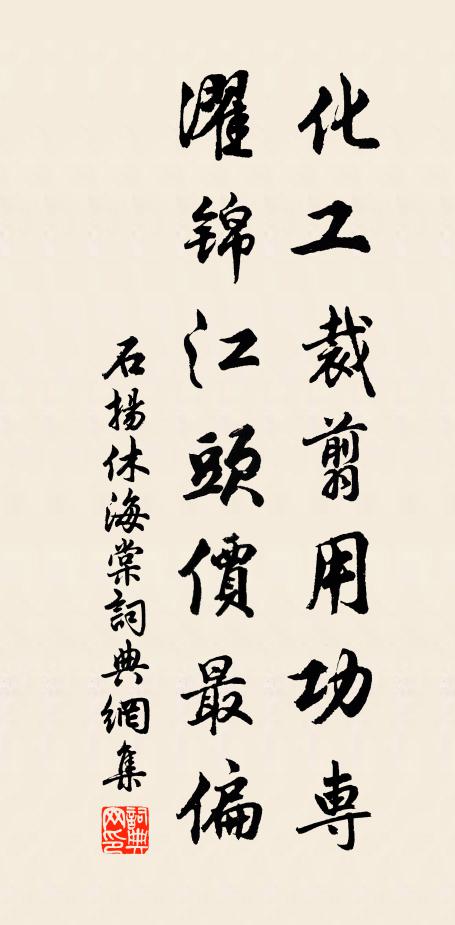 化工裁翦用功専
濯錦江頭價最偏
石揚休海棠詞典網集
詞典網印